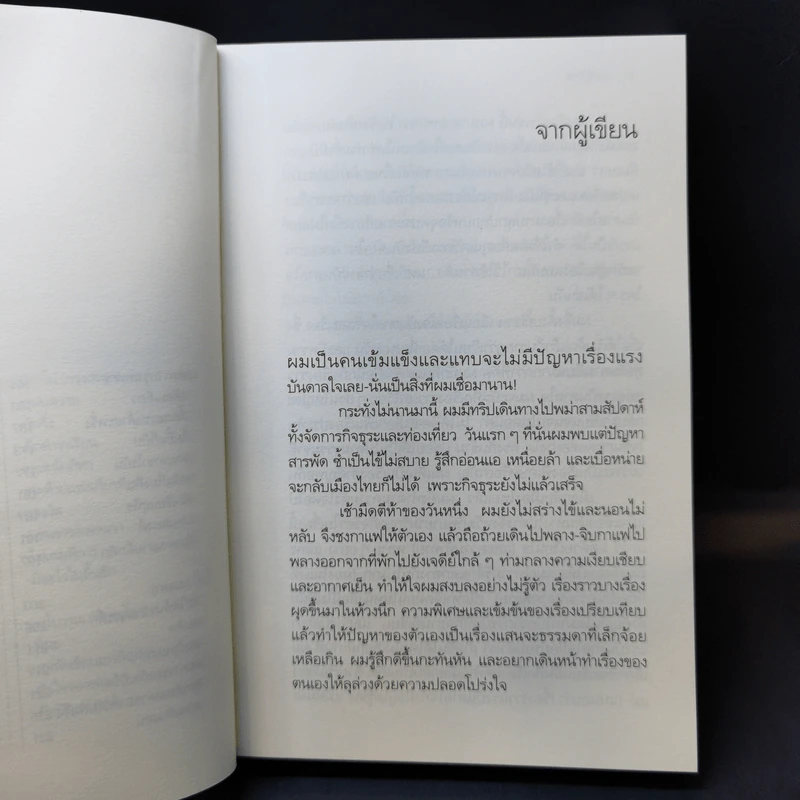 จากผู้เขียน
ผมเป็นคนเข้มแข็งและแทบจะไม่มีปัญหาเรื่องแรง
บันดาลใจเลย-นั่นเป็นสิ่งที่ผมเชื่อมานาน!
กระทั่งไม่นานมานี้ ผมมีทริปเดินทางไปพม่าสามสัปดาห์
ทั้งจัดการกิจธุระและท่องเที่ยว วันแรก ๆ ที่นั่นผมพบแต่ปัญหา
สารพัด ซ้ำเป็นไข้ไม่สบาย รู้สึกอ่อนแอ เหนื่อยล้า และเบื่อหน่าย
จะกลับเมืองไทยก็ไม่ได้ เพราะกิจธุระยังไม่แล้วเสร็จ
เช้ามืดตีห้าของวันหนึ่ง ผมยังไม่สร่างไข้และนอนไม่
หลับ จึงชงกาแฟให้ตัวเอง แล้วถือถ้วยเดินไปพลาง-จิบกาแฟไป
พลางออกจากที่พักไปยังเจดีย์ใกล้ ๆ ท่ามกลางความเงียบเชียบ
และอากาศเย็น ทำให้ใจผมสงบลงอย่างไม่รู้ตัว เรื่องราวบางเรื่อง
ผุดขึ้นมาในห้วงนึก ความพิเศษและเข้มข้นของเรื่องเปรียบเทียบ
แล้วทำให้ปัญหาของตัวเองเป็นเรื่องแสนจะธรรมดาที่เล็กจ้อย
เหลือเกิน ผมรู้สึกดีขึ้นกะทันหัน และอยากเดินหน้าทำเรื่องของ
ตนเองให้ลุล่วงด้วยความปลอดโปร่งใจ